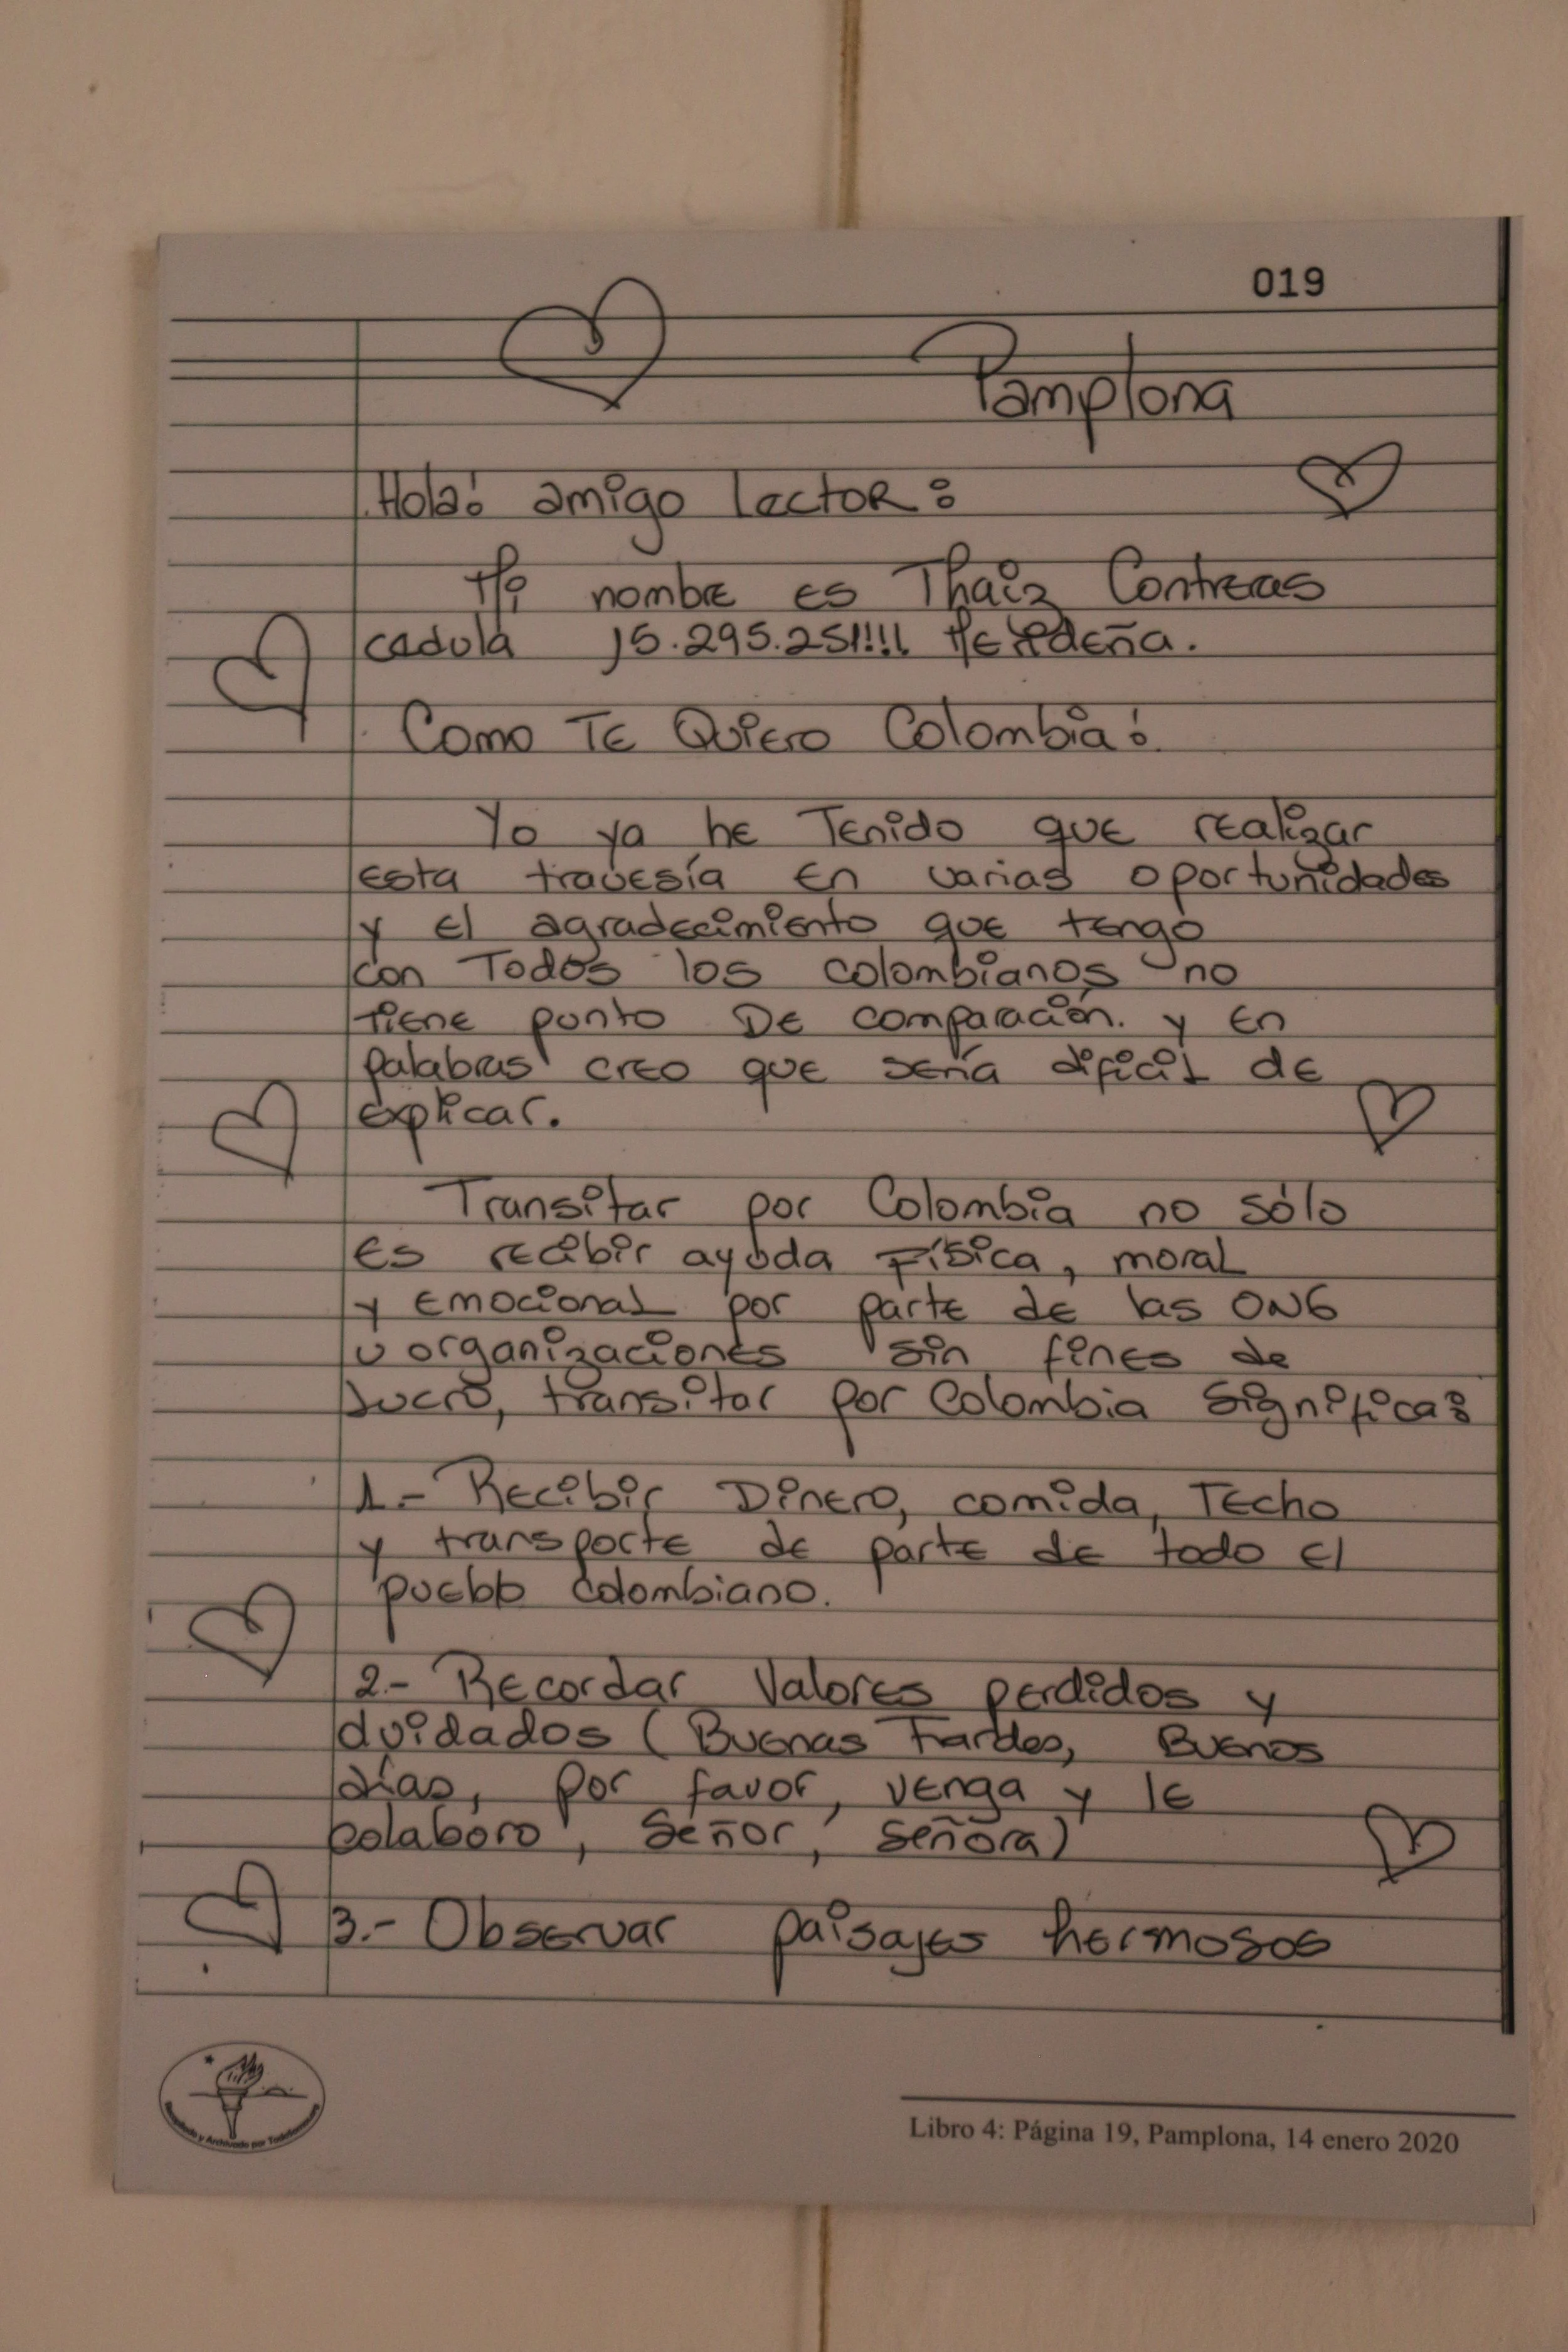 019
Pamplona
Hola! amigo Lector:
Mi nombre es Thaiz Contreras
cedula 15.295.251!!!! Merideña.
Como Te Quiero Colombia!
Yo ya he Tenido que realizar
esta travesía en varias oportunidades
y el agradecimiento que tengo
con Todos los colombianos no
tiene punto De comparación. y en
palabras creo que sería dificil de
explicar.
Transitar por Colombia no sólo
es recibir ayuda Física, moral
y emocional por parte de las ONG
u organizaciones sin fines de
lucro, transitar por Colombia significa:
1.- Recibir Dinero, comida, Techo
y transporte de parte de todo el
pueblo colombiano.
2.- Recordar Valores perdidos y
olvidados (Buenas Tardes, Buenos
días, por favor, venga y le
colaboro, Señor, Señora)
3.- Observar paisajes hermosos
Recopilado y Archivado por
Libro 4: Página 19, Pamplona, 14 enero 2020